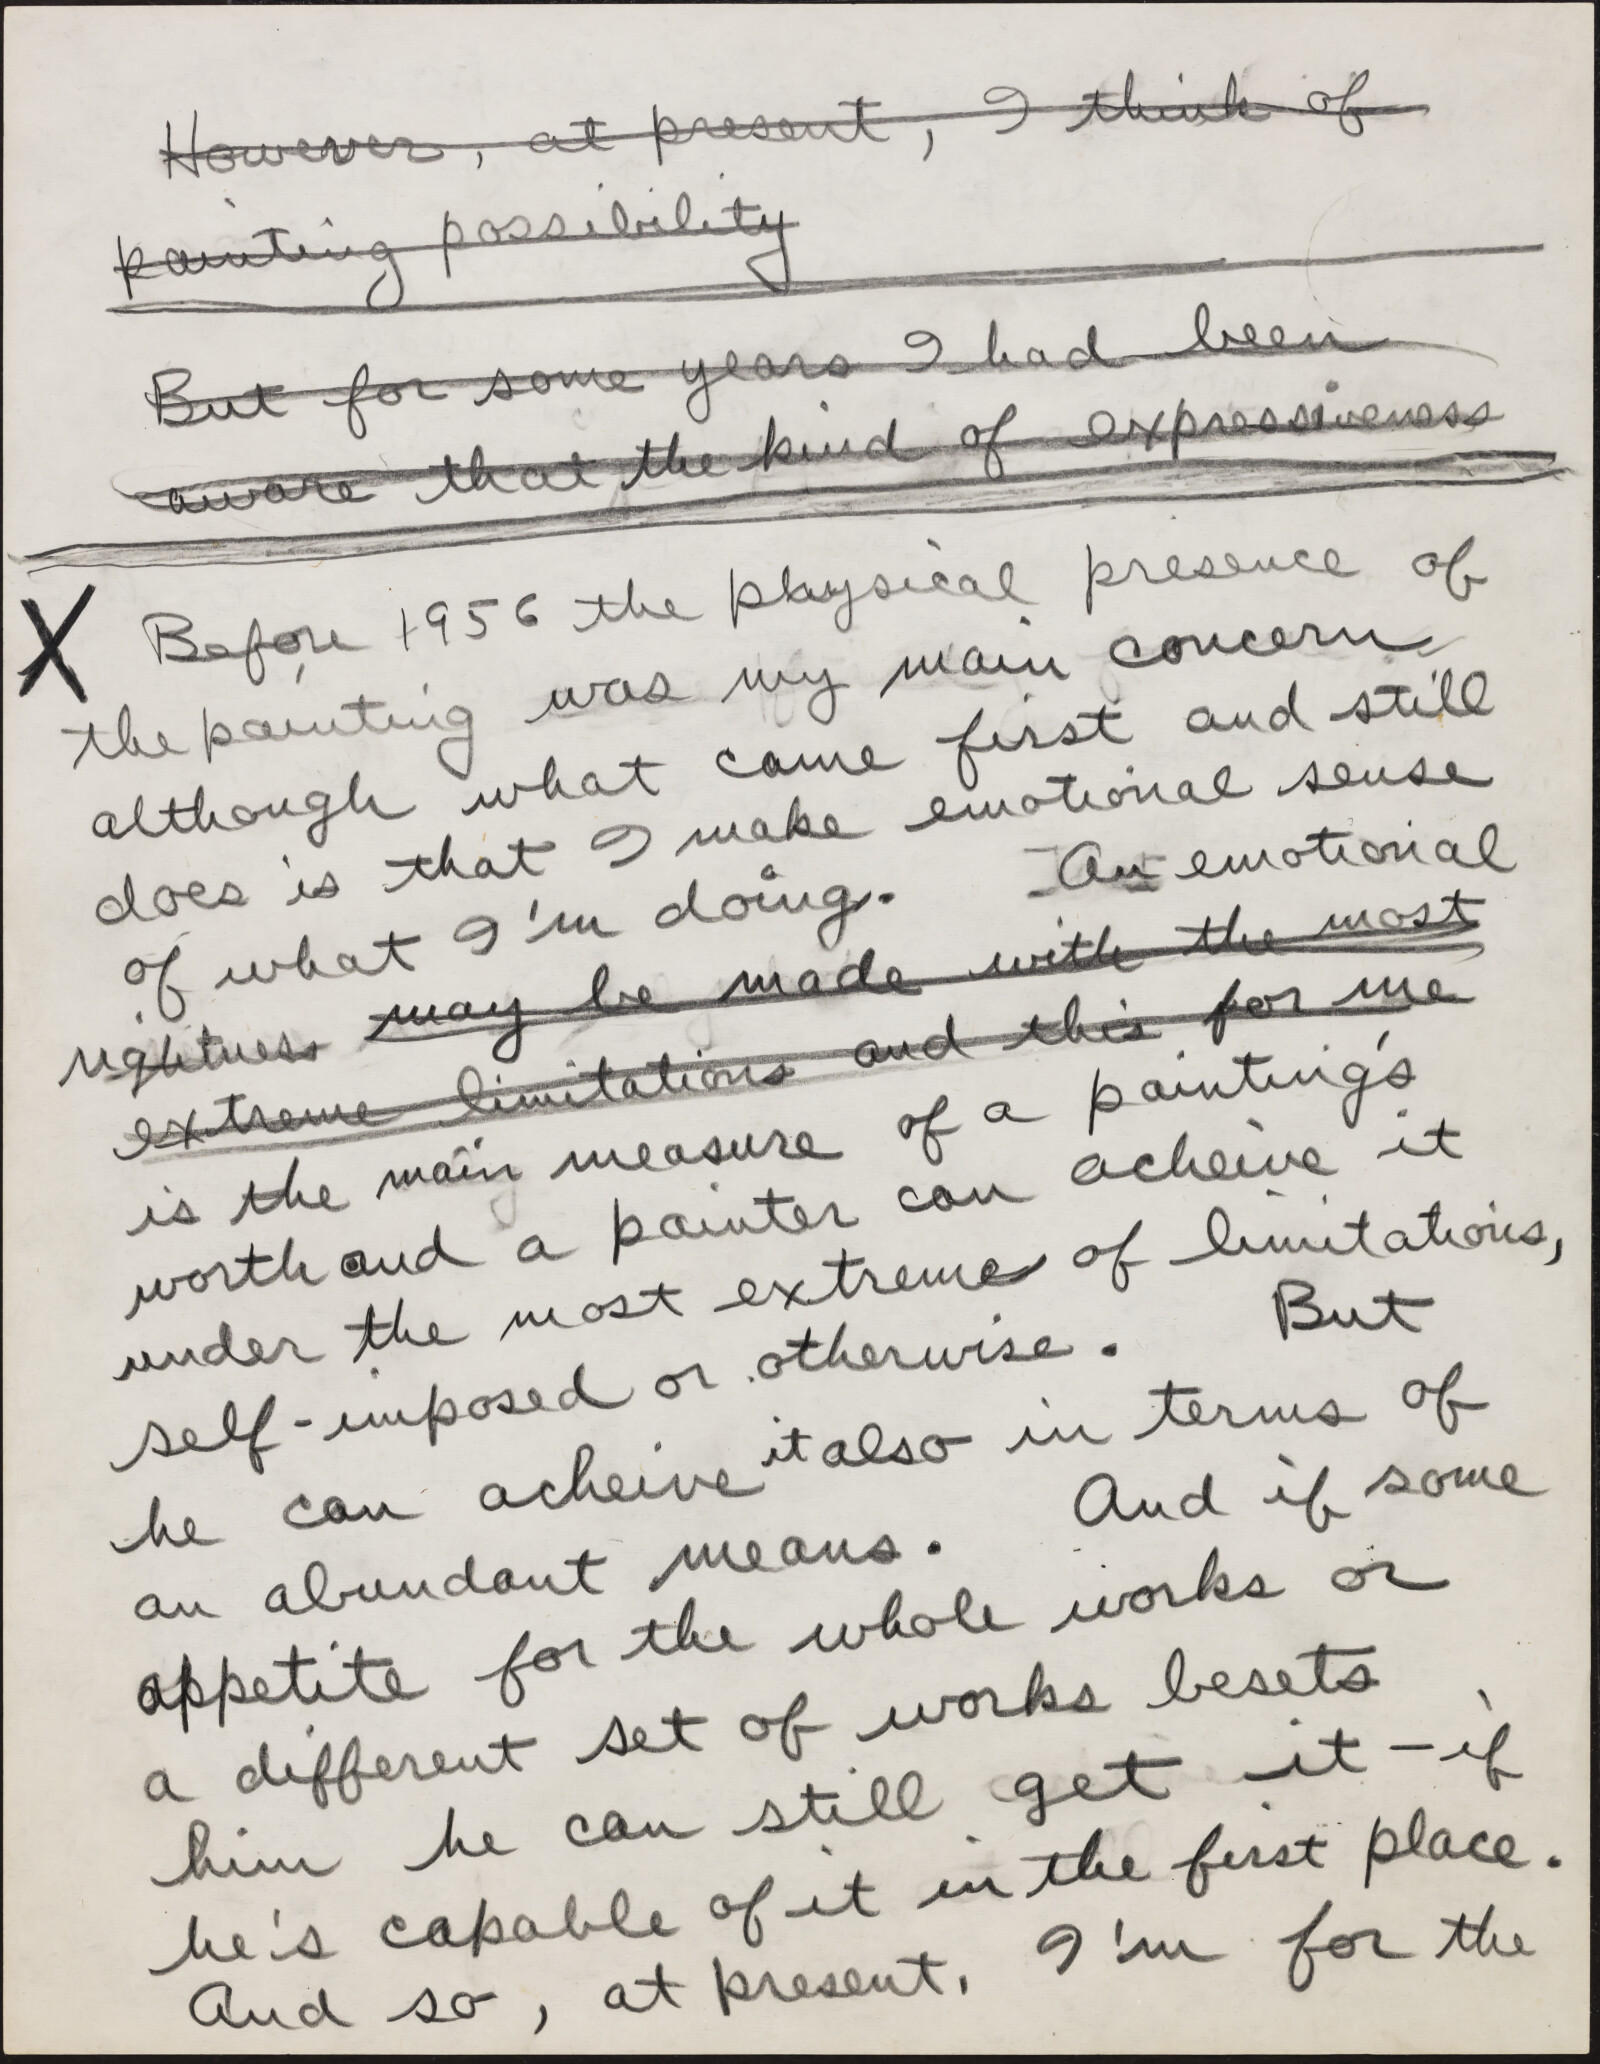 However, at present, I think of
painting possibility
But for some years I had been
aware that the kind of expressiveness
X Before 1956 the physical presence of
the painting was my main concern
although what came first and still
does is that I make emotional sense
of what I'm doing. An emotional
rightness may be made with the most
extreme limitations and this for me
is the main measure of a painting's
worth and a painter can acheive it
under the most extreme of limitations,
self-imposed or otherwise. But
he can acheive it also in terms of
an abundant means. And if some
appetite for the whole works or
a different set of works besets
him he can still get it - if
he's capable of it in the first place.
And so, at present, I'm for the